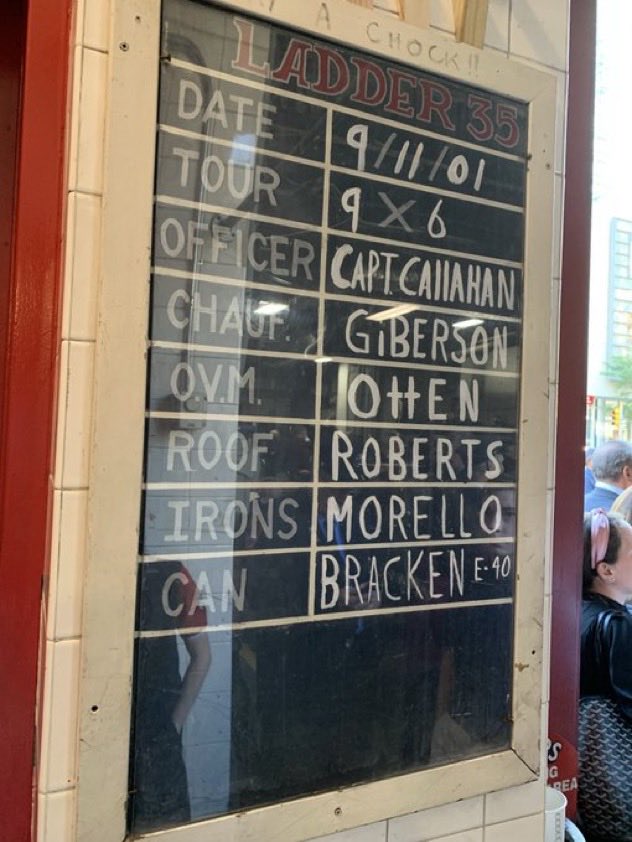 A CHOCK!!
LADDER 35
DATE 9/11/01
TOUR 9 X 6
OFFICER CAPT. CALLAHAN
CHAUF. GIBERSON
O.V.M. OTTEN
ROOF ROBERTS
IRONS MORELLO
CAN BRACKEN E-40